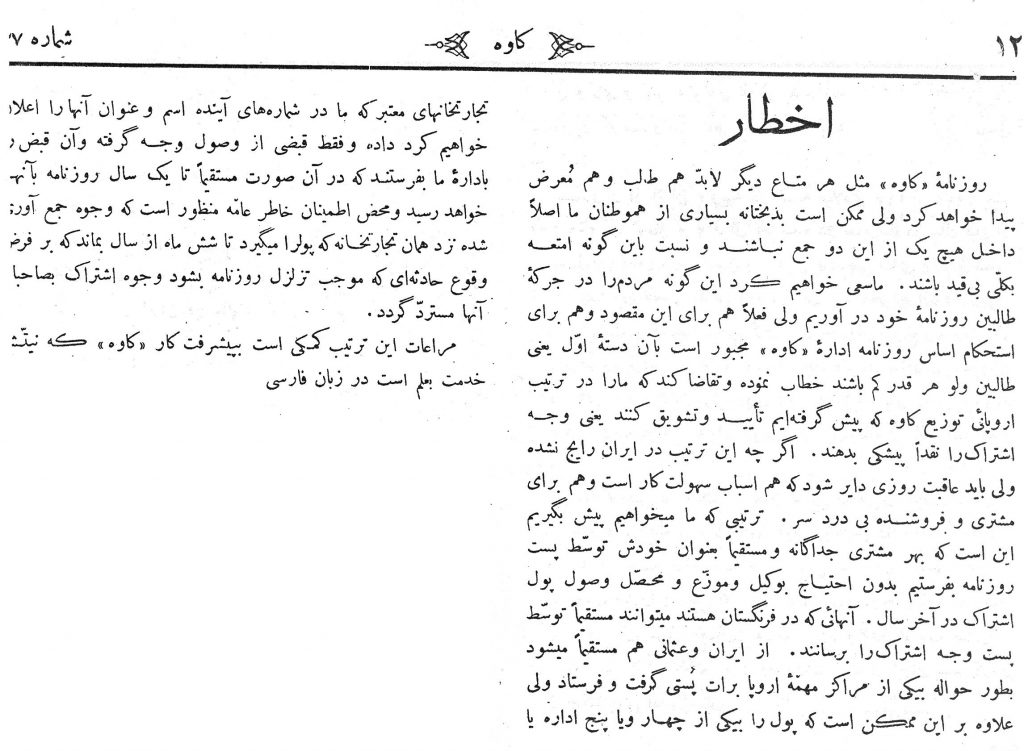 ۱۲
کاوه
شماره ۷
اخطار
روزنامهٔ «کاوه» مثل هر متاع دیگر لابدّ هم طالب وهم مُعرض
پیدا خواهد کرد ولی ممکن است بدبختانه بسیاری از هموطنان ما اصلاً
داخل هیچ یک از این دو جمع نباشند و نسبت باین گونه امتعه
بکلّی بی‌قید باشند. ماسعی خواهیم کرد این گونه مردم‌را در جرکهٔ
طالبین روزنامهٔ خود در آوریم ولی فعلاً هم برای این مقصود وهم برای
استحکام اساس روزنامه ادارهٔ «کاوه» مجبور است بآن دستهٔ اوّل یعنی
طالبین ولو هر قدر کم باشند خطاب نموده وتقاضا کند که مارا در ترتیب
اروپائی توزیع کاوه که پیش گرفته‌ایم تأیید وتشویق کنند یعنی وجه
اشتراک را نقداً پیشکی بدهند. اگر چه این ترتیب در ایران رایج نشده
ولی باید عاقبت روزی دایر شود که هم اسباب سهولت کار است وهم برای
مشتری و فروشنده بی درد سر. ترتیبی که ما میخواهیم پیش بگیریم
این است که بهر مشتری جداگانه ومستقیماً بعنوان خودش توسّط پست
روزنامه بفرستیم بدون احتیاج بوکیل وموزّع و محصّل وصول پول
اشتراک در آخر سال. آنهائی که در فرنگستان هستند میتوانند مستقیماً توسّط
پست وجه اشتراک را برسانند. از ایران وعثمانی هم مستقیماً میشود
بطور حواله بیکی از مراکز مهمّهٔ اروپا برات پُستی گرفت و فرستاد ولی
علاوه بر این ممکن است که پول را بیکی از چهار ویا پنج اداره یا
تجارتخانهای معتبر که ما در شماره‌های آینده اسم وعنوان آنها را اعلان
خواهیم کرد داده وفقط قبضی از وصول وجه گرفته وآن قبض ر
بادارهٔ ما بفرستند که در آن صورت مستقیماً تا یک سال روزنامه بآنها
خواهد رسید ومحض اطمینان خاطر عامّه منظور است که وجوه جمع آوری
شده نزد همان تجارتخانه که پولرا میگیرد تا شش ماه از سال بماند که بر فرض
وقوع حادثه‌ای که موجب تزلزل روزنامه بشود وجوه اشتراک بصاحبا
آنها مستردّ گردد.
مراعات این ترتیب کمکی است بپیشرفت کار «کاوه» که نیّتش
خدمت بعلم است در زبان فارسی